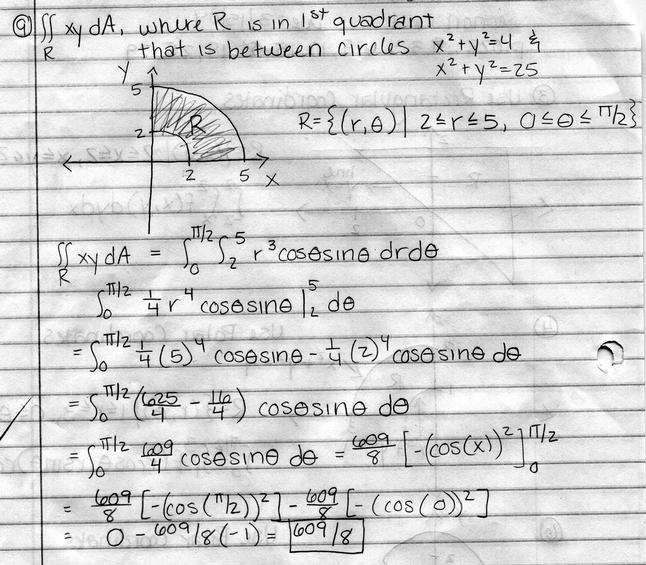 ⑨ ∬_R xy dA, where R is in 1st quadrant
that is between circles x²+y²=4 &
x²+y²=25
Y
5
2
R
2 5 X
R={(r,θ)| 2≤r≤5, 0≤θ≤π/2}
∬_R xy dA = ∫₀^π/2 ∫₂^5 r³cosθsinθ drdθ
∫₀^π/2 1/4 r⁴ cosθsinθ |₂^5 dθ
=∫₀^π/2 1/4 (5)⁴ cosθsinθ - 1/4 (2)⁴ cosθsinθ dθ
=∫₀^π/2 (625/4 - 16/4) cosθsinθ dθ
=∫₀^π/2 609/4 cosθsinθ dθ = 609/8 [-(cos(x))²]₀^π/2
= 609/8 [-(cos(π/2))²] - 609/8 [-(cos(0))²]
= 0 - 609/8(-1) = 609/8